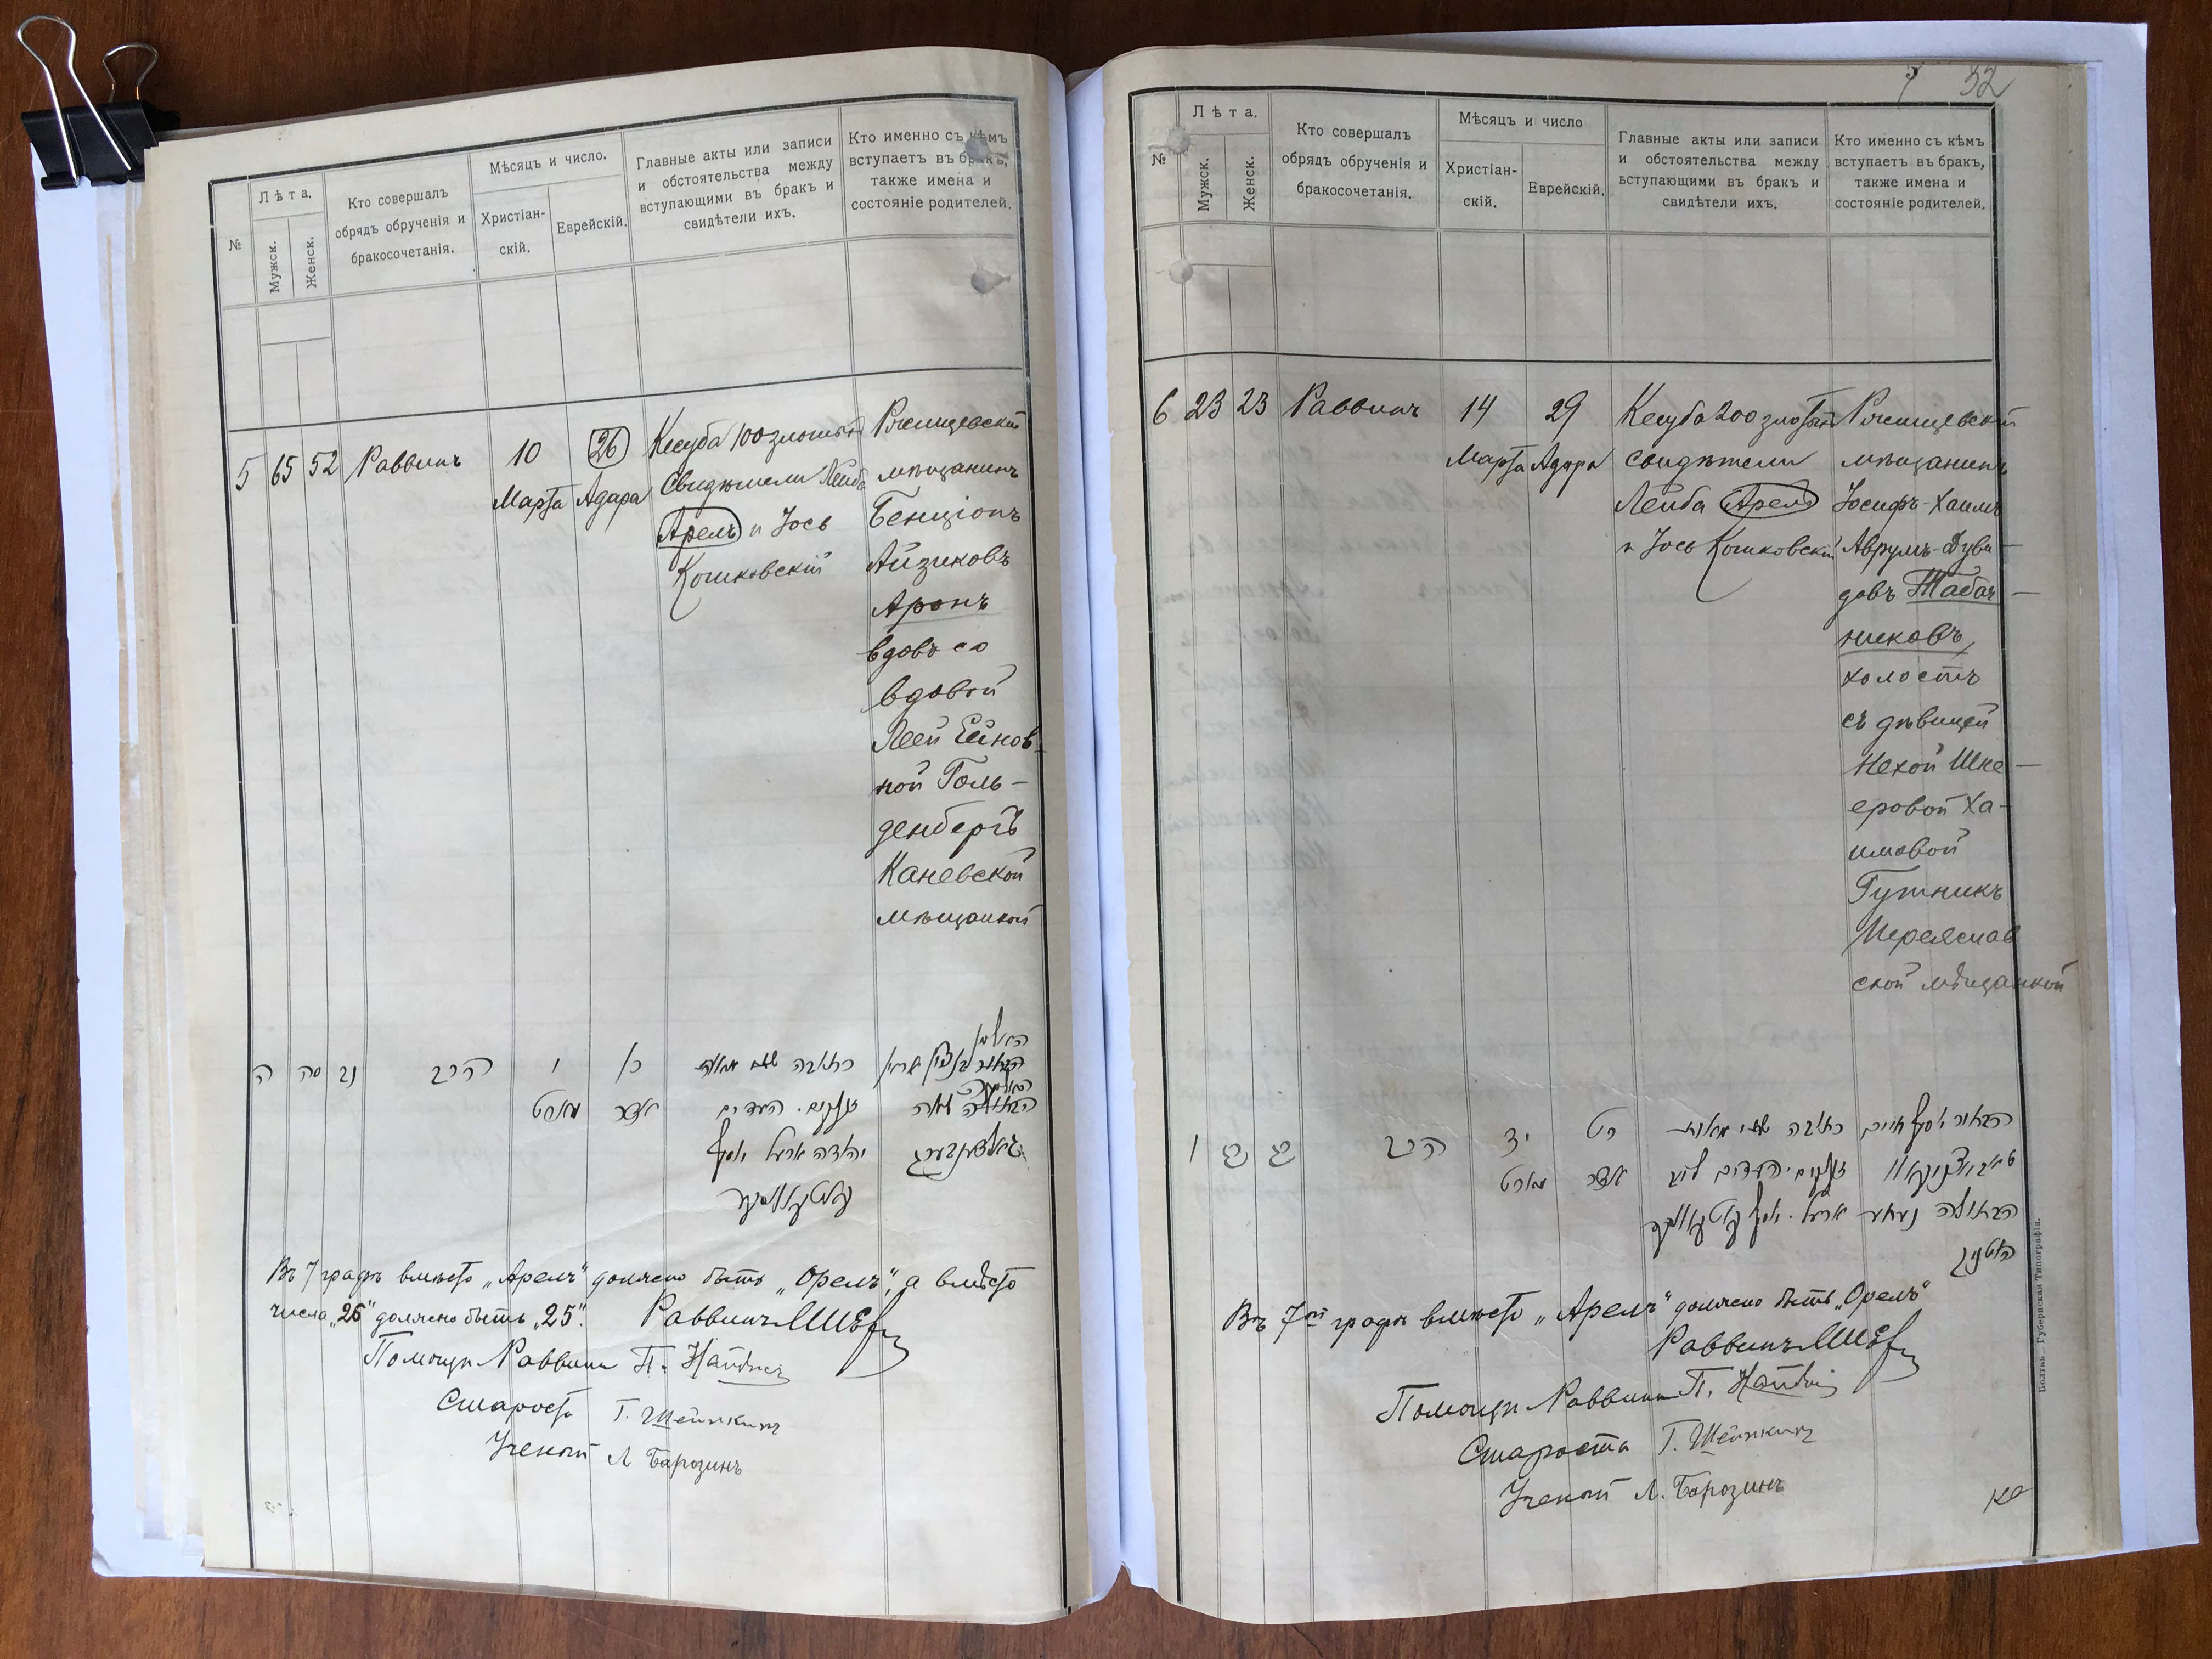 №
Лѣта.
Мужск.
Женск.
Кто совершалъ
обрядъ обрученія и
бракосочетанія.
Мѣсяцъ и число.
Христіан-
скій.
Еврейскій.
Главные акты или записи
и обстоятельства между
вступающими въ бракъ и
свидѣтели ихъ.
Кто именно съ кѣмъ
вступаетъ въ бракъ,
также имена и
состояніе родителей.
5
65
52
Раввинъ
10
Марта
26
Адара
Кесуба 100 злотых
Свидѣтели Лейба
Арелъ и Іось
Кошковскій
мѣщанинъ
Бенціонъ
Айзиковъ
Аронъ
вдовъ со
вдовой
Леей Ейнов-
ной Голь-
денбергъ
Каневской
мѣщанкой
ה
סה
נב
הרב
י
מארט
כו
אדר
כתובה
זהובים. העדים
יהודה ארעל יוסף
Въ 7 графѣ вмѣсто „Арелъ" должно быть „Орелъ", а вмѣсто
числа „26" должно быть „25".
Раввинъ
Помощн Раввина П.
Староста Г. Шейнкинъ
Ученый Л Барозинъ
32
№
Лѣта.
Мужск.
Женск.
Кто совершалъ
обрядъ обрученія и
бракосочетанія.
Мѣсяцъ и число
Христіан-
скій.
Еврейскій.
Главные акты или записи
и обстоятельства между
вступающими въ бракъ и
свидѣтели ихъ.
Кто именно съ кѣмъ
вступаетъ въ бракъ,
также имена и
состояніе родителей.
6
23
23
Раввинъ
14
Марта
29
Адара
Кесуба 200 злотых
свидѣтели
Лейба Арелъ
и Іось Кошковскій
мѣщанинъ
Іосифъ-Хаимъ
Аврумъ-Дуви-
довъ Табач-
никовъ,
холостъ
съ дѣвицей
Нехой Шне-
еровой Ха-
имовой
Гутникъ
Переяслав
ской мѣщанкой
ו
הרב
יד
מארט
כט
אדר
הבחור יוסף חיים
כתובה שתי מאות
זהובים. העדים ליב
הבתולה נעחע
ארעל. יוסף
Въ 7ой графѣ вмѣсто „Арелъ" должно быть „Орелъ"
Раввинъ
Помощн Раввина П.
Староста Г. Шейнкинъ
Ученый Л. Барозинъ
Полтава. Губернская Типографія.